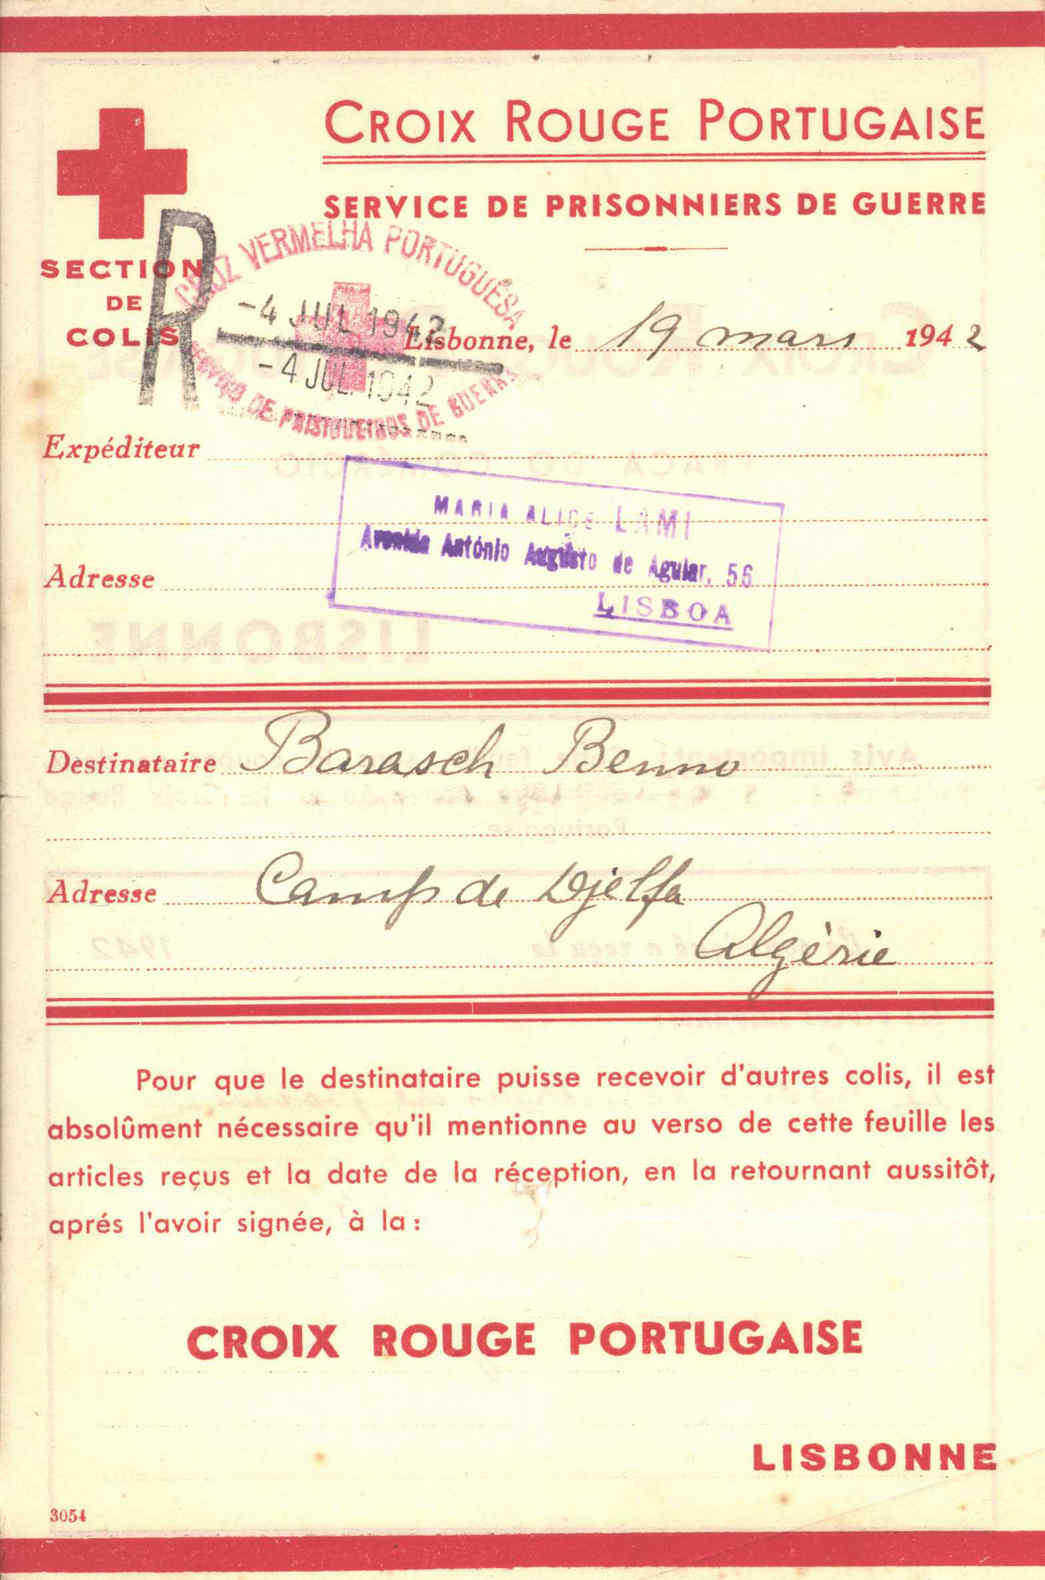 CROIX ROUGE PORTUGAISE
SERVICE DE PRISONNIERS DE GUERRE
SECTION
DE
COLIS
R
CRUZ VERMELHA PORTUGUESA
-4 JUL 1942
-4 JUL 1942
SERVIÇO DE PRISIONEIROS DE GUERRA
Lisbonne, le 19 mars 1942
Expéditeur
MARIA ALICE LAMI
Avenida António Augusto de Aguiar, 56
LISBOA
Adresse
Destinataire Barasch Benno
Adresse Camp de Djelfa
Algérie
Pour que le destinataire puisse recevoir d'autres colis, il est
absolûment nécessaire qu'il mentionne au verso de cette feuille les
articles reçus et la date de la réception, en la retournant aussitôt,
aprés l'avoir signée, à la:
CROIX ROUGE PORTUGAISE
LISBONNE
3054